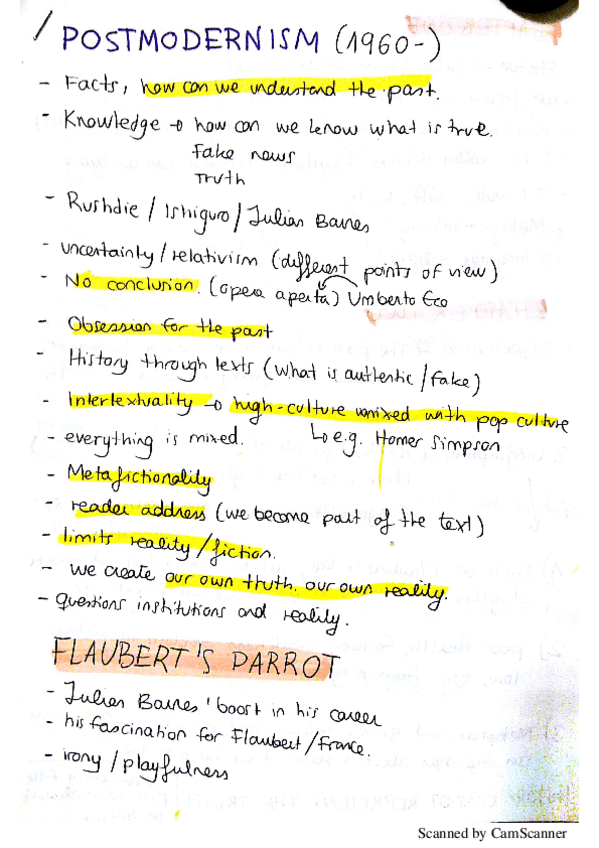 POSTMODERNISM (1960-)
- Facts, how can we understand the past.
- Knowledge → how can we know what is true.
Fake news
Truth
- Rushdie / Ishiguro / Julian Barnes
- uncertainty / relativism (different points of view)
- No conclusion. (opera aperta) Umberto Eco
- Obsession for the past
- History through texts (what is authentic / fake)
- Intertextuality → high-culture mixed with pop culture
- everything is mixed. ↳ e.g. Homer Simpson
- Metafictionality
- reader address (we become part of the text)
- limits reality / fiction.
- we create our own truth. our own reality.
- questions institutions and reality.
FLAUBERT'S PARROT
- Julian Barnes' boost in his career
- his fascination for Flaubert / France.
- irony / playfulness
Scanned by CamScanner